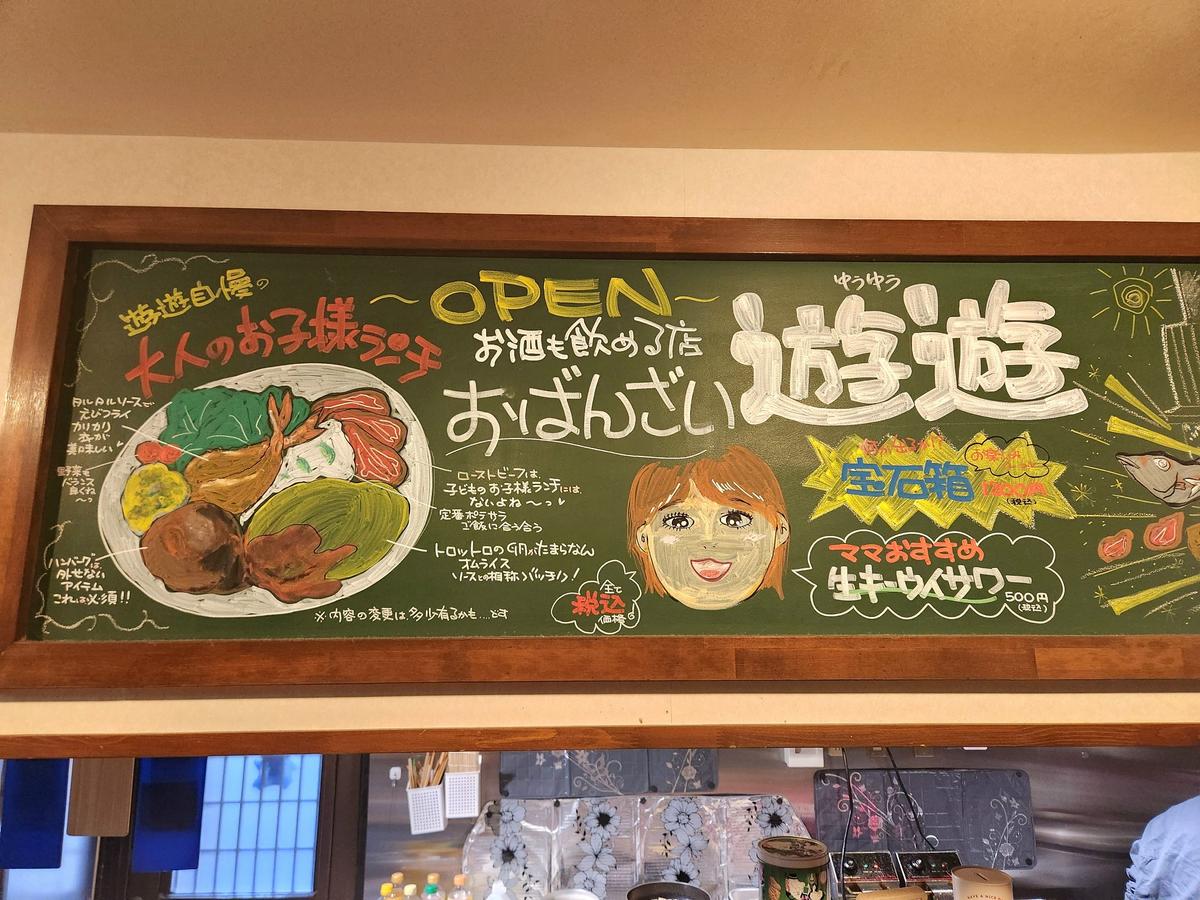 遊遊自慢の
大人のお子様ランチ
タルタルソースで
えびフライ
カリカリ
美味しい
野菜も
バランス
良くね
〜っ
ハンバーグは、
外せない
アイテム
これは必須!!
〜OPEN〜
お酒も飲める店
おばんざい
ローストビーフは、
子どものお子様ランチには、
ないよね〜っ♥
定番ポテサラ
ご飯に合う合う
トロットロの卵がたまらなん
オムライス
ソースとの相称バッチリ!
※内容の変更は、多少有るかも....です
全て
税込
価格
ゆうゆう
遊遊
宝石箱
1200円
(税込)
ママおすすめ
生キーウィサワー
500円
(税込)